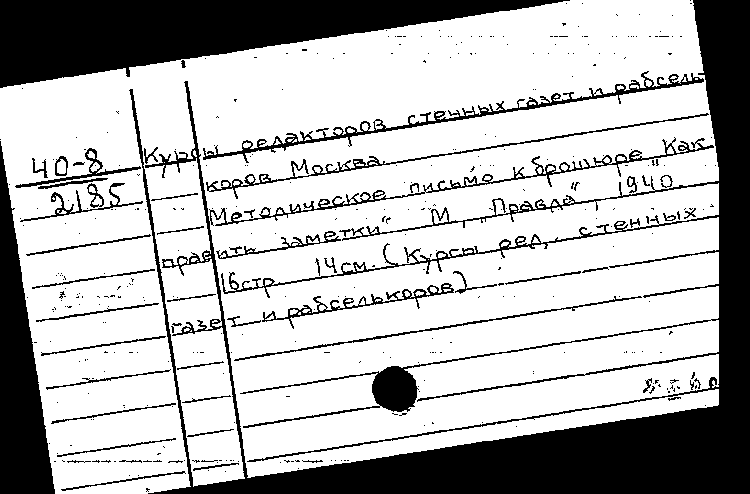 40-8
2185
Курсы редакторов стенных газет и рабсель-
коров Москва.
Методическое письмо к брошюре „Как
править заметки“ М, „Правда“, 1940.
16стр. 14см. (Курсы ред, стенных
газет и рабселькоров)